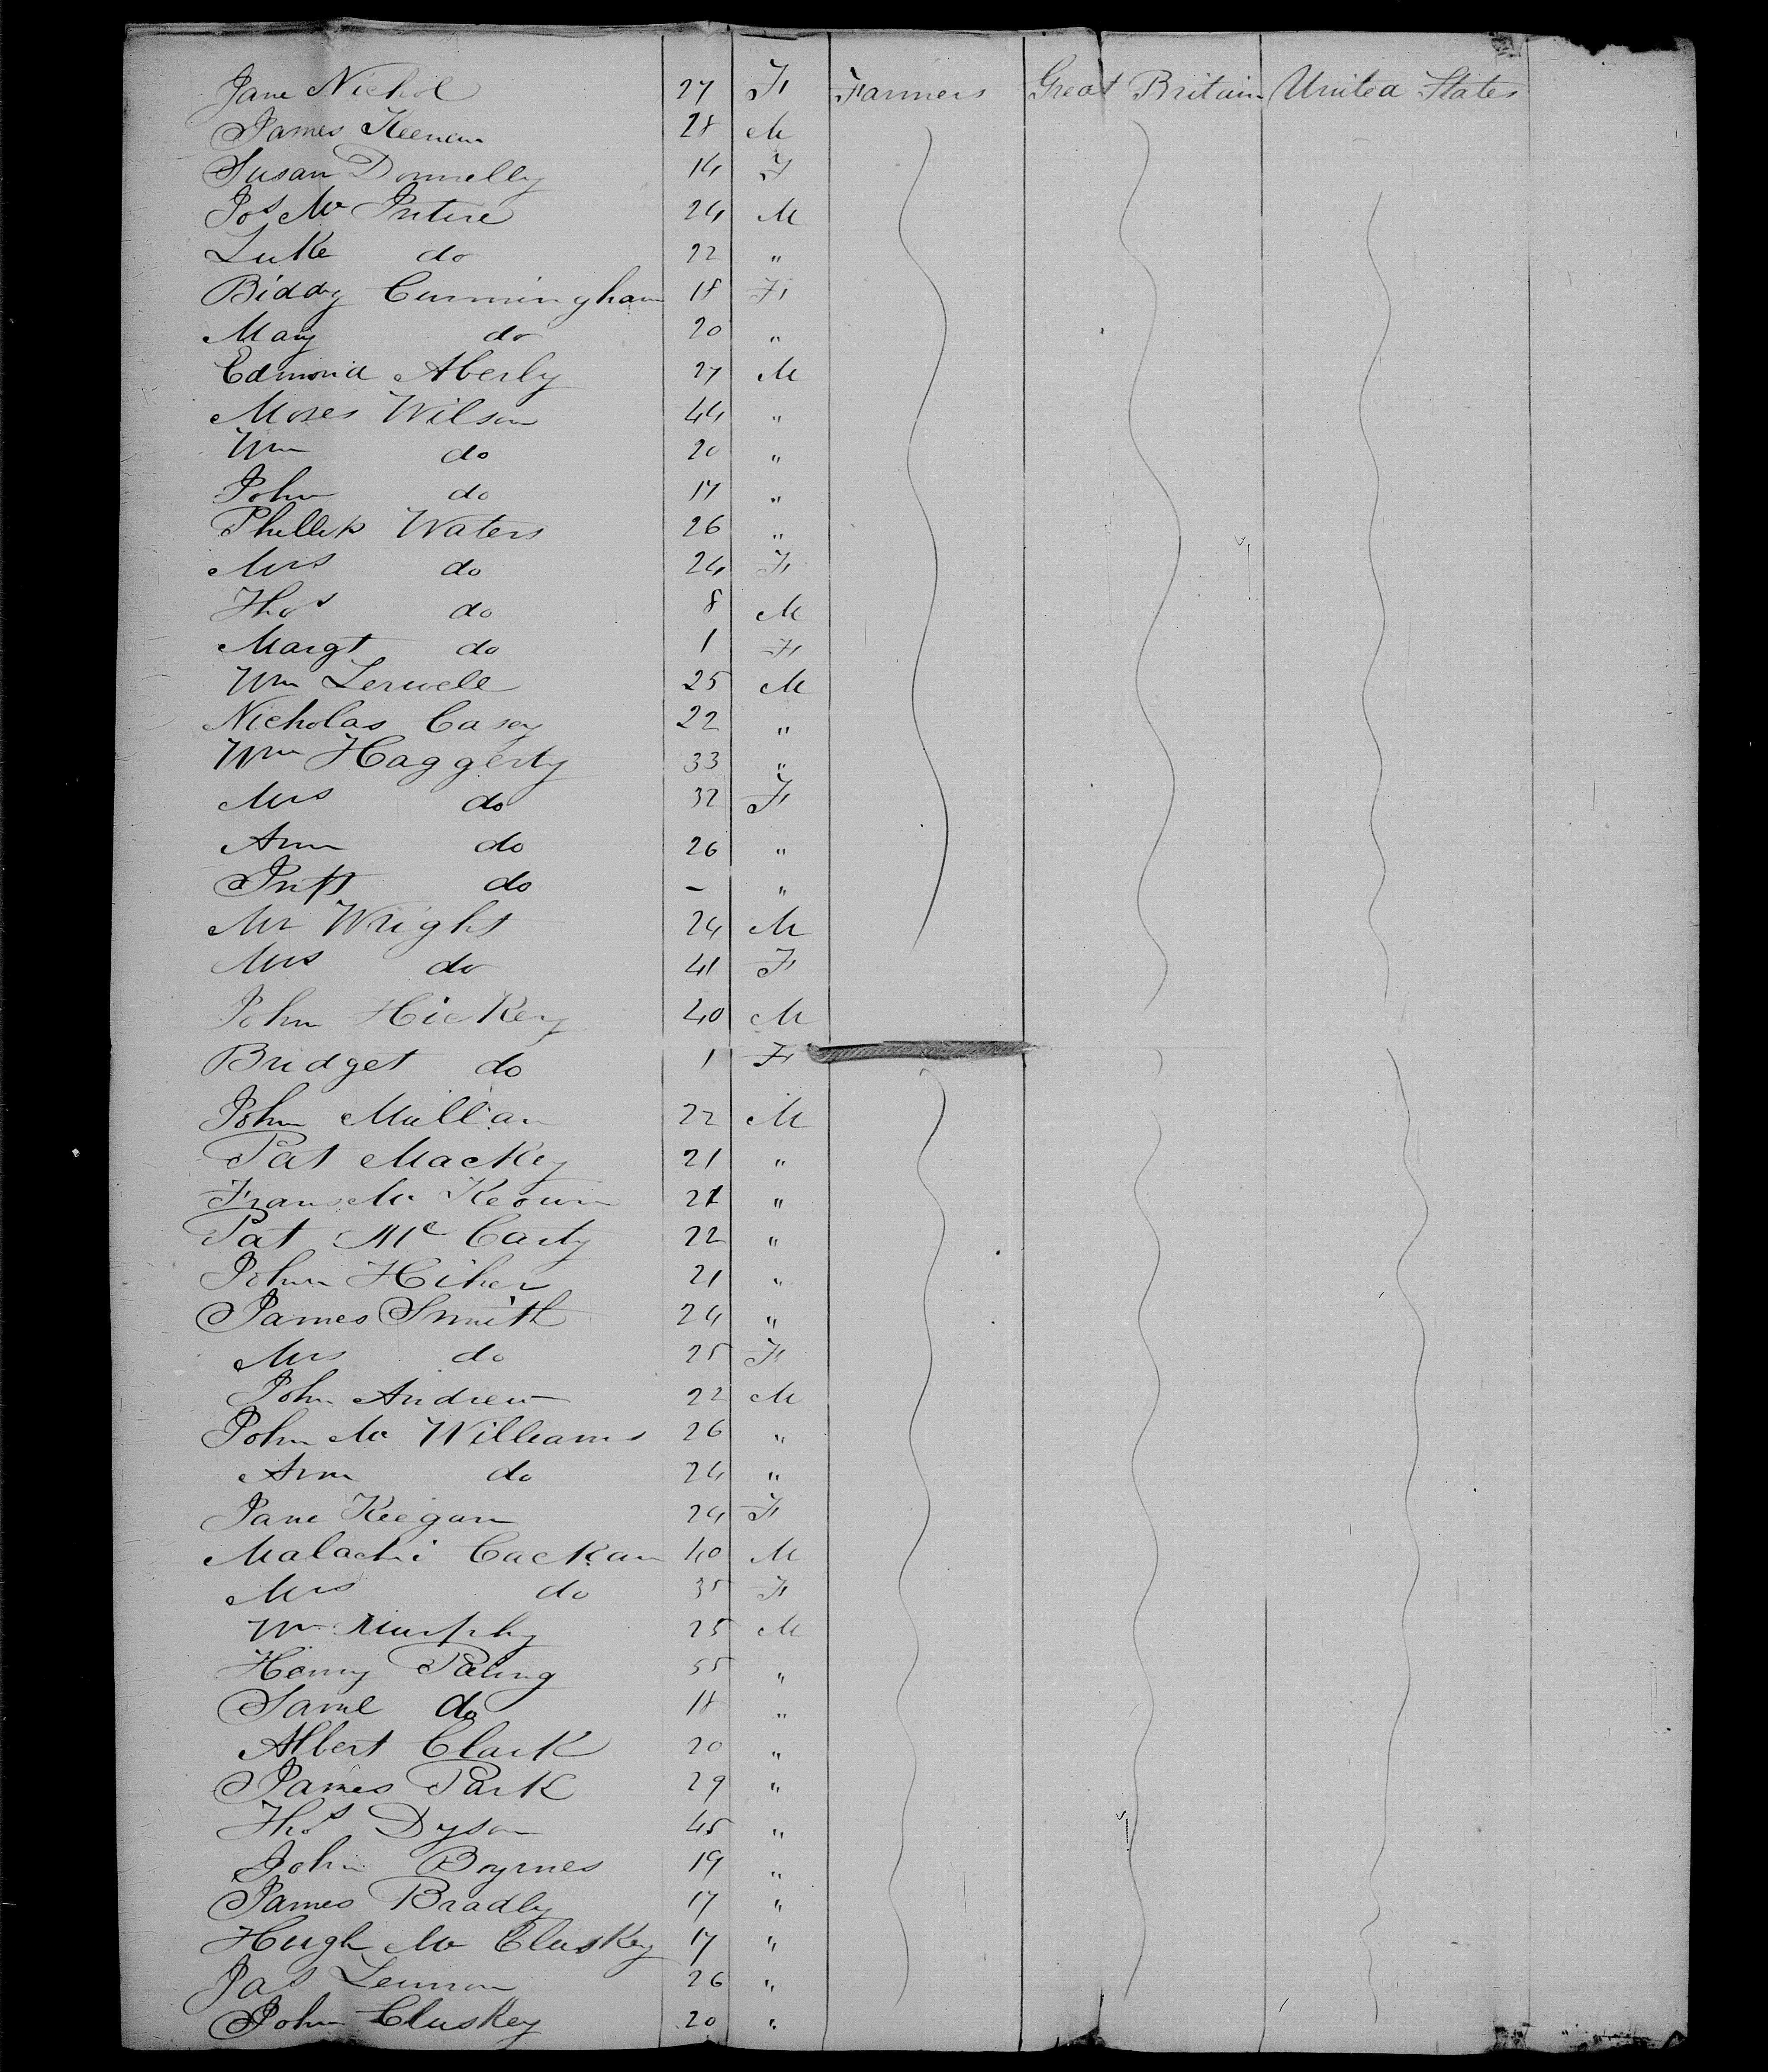 Jane Nichol 27 F Farmers Great Britain United States
James Keenan 28 M
Susan Donnelly 14 F
Jos Mc Intire 24 M
Luke do 22 "
Biddy Cunningham 18 F
Mary do 20 "
Edmond Aberly 27 M
Moses Wilson 44 "
Wm do 20 "
John do 17 "
Phillip Waters 26 "
Mrs do 24 F
Thos do 8 M
Margt do 1 F
Wm Lerwell 25 M
Nicholas Casey 22 "
Wm Haggerty 33 "
Mrs do 32 F
Ann do 26 "
Inft do - "
Mr Wright 24 M
Mrs do 41 F
John Hickey 40 M
Bridget do 1 F
John Mullan 22 M
Pat Mackey 21 "
Frans Mc Keown 21 "
Pat Mc Carty 22 "
John Hiher 21 "
James Smith 24 "
Mrs do 25 F
John Andrew 22 M
John Mc Williams 26 "
Ann do 24 "
Jane Keegan 24 F
Malachi Cackan 40 M
Mrs do 35 F
Wm Murphy 25 M
Henry Paling 55 "
Saml do 18 "
Albert Clark 20 "
James Park 29 "
Thos Dyson 45 "
John Boyrnes 19 "
James Bradly 17 "
Hugh Mc Cluskey 17 "
Jas Lennon 26 "
John Cluskey 20 "